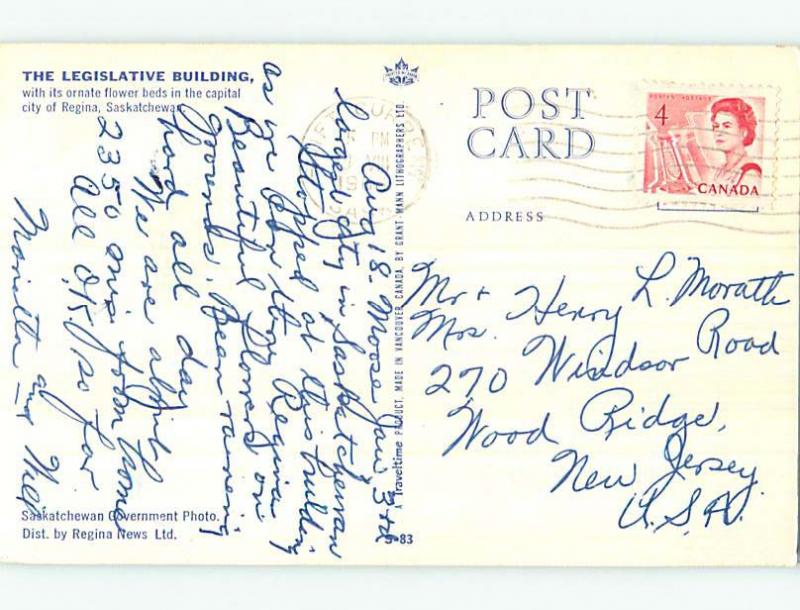 THE LEGISLATIVE BUILDING,
with its ornate flower beds in the capital
city of Regina, Saskatchewan.
Aug 18. Moose Jaw 3rd
larges city in Saskatchewan
Stopped at this buildin
as we Con thru Regina
Beautiful flowers on
Grounds. Been raining
hard all day
We are abut
2350 mis from home
All O.K. so far
Marietta and Will
Saskatchewan Government Photo.
Dist. by Regina News Ltd.
S-83
A Traveltime PRODUCT, MADE IN VANCOUVER, CANADA, BY GRANT-MANN LITHOGRAPHERS LTD.
POST
CARD
ADDRESS
4
POSTES POSTAGE
CANADA
PM
Mr + Henry L. Morath
Mrs.
270 Windsor Road
Wood Ridge,
New Jersey
U.S.A.